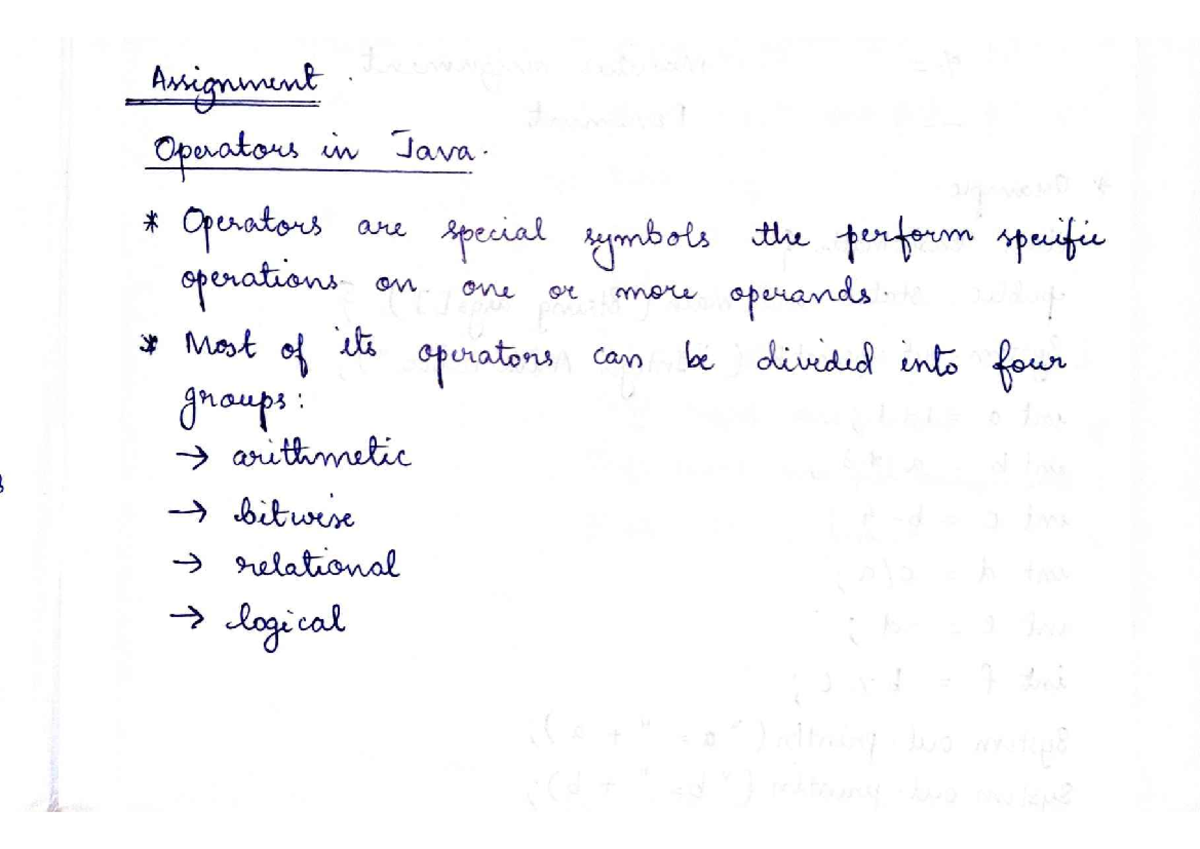 Assignment.
Operators in Java.
* Operators are special symbols the perform specific
operations on one or more operands.
* Most of its operators can be divided into four
groups:
→ arithmetic
→ bitwise
→ relational
→ logical